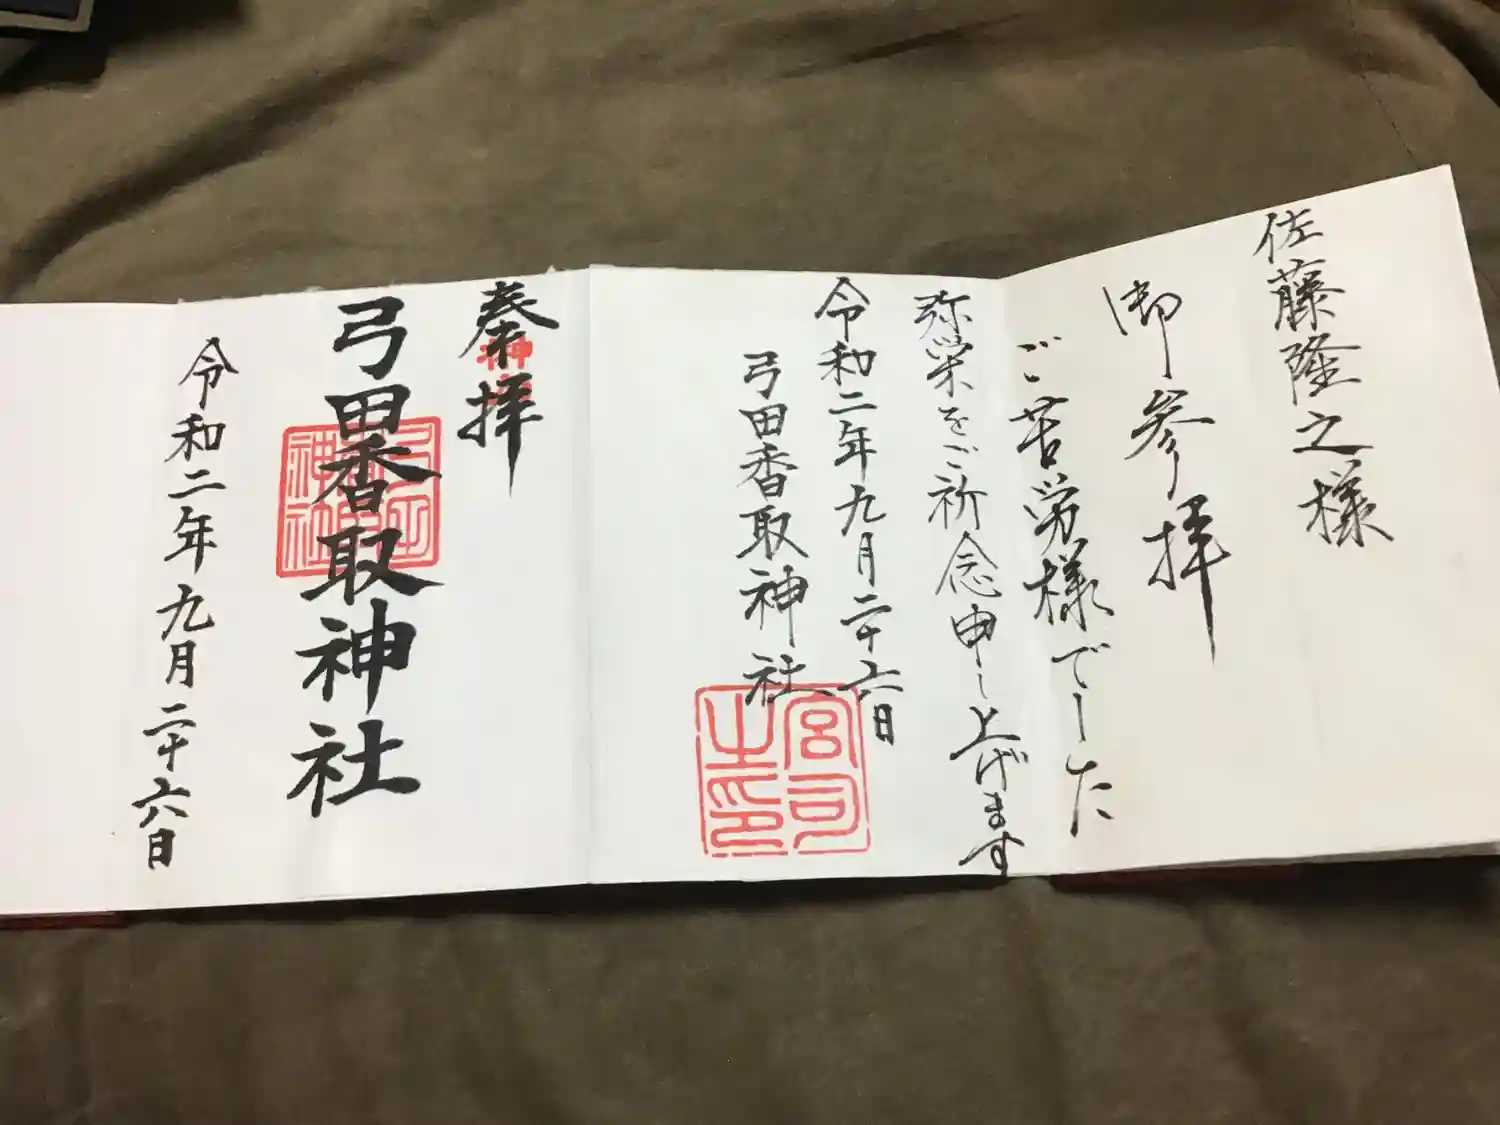 佐藤隆之様
御参拝
ご苦労様でした
弥栄をご祈念申し上げます
令和二年九月二十六日
弓田香取神社
宮司之印
奉拝
弓田香取神社
令和二年九月二十六日